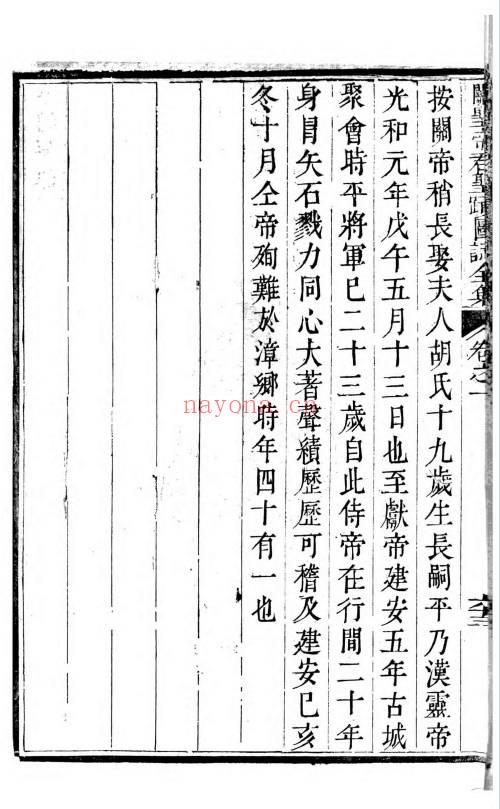 關聖帝君聖蹟圖誌全集 卷之一
按關帝稍長娶夫人胡氏十九歲生長嗣平乃漢靈帝
光和元年戊午五月十三日也至獻帝建安五年古城
聚會時平將軍已二十三歲自此侍帝在行間二十年
身冒矢石戮力同心大著聲績歷歷可稽及建安已亥
冬十月仝帝殉難於漳鄉時年四十有一也
nayona.cn